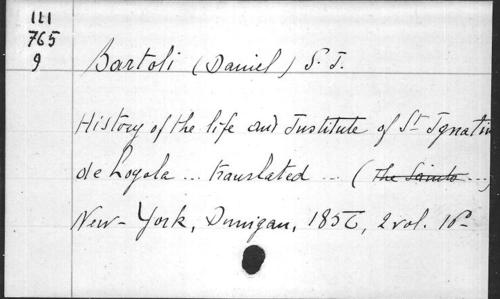 III
765
9
Bartoli (Daniel) S. J.
History of the life and Institute of St Ignatius
de Loyola ... translated ... (The Saints ...)
New-York, Dunigan, 1856, 2 vol. 16º